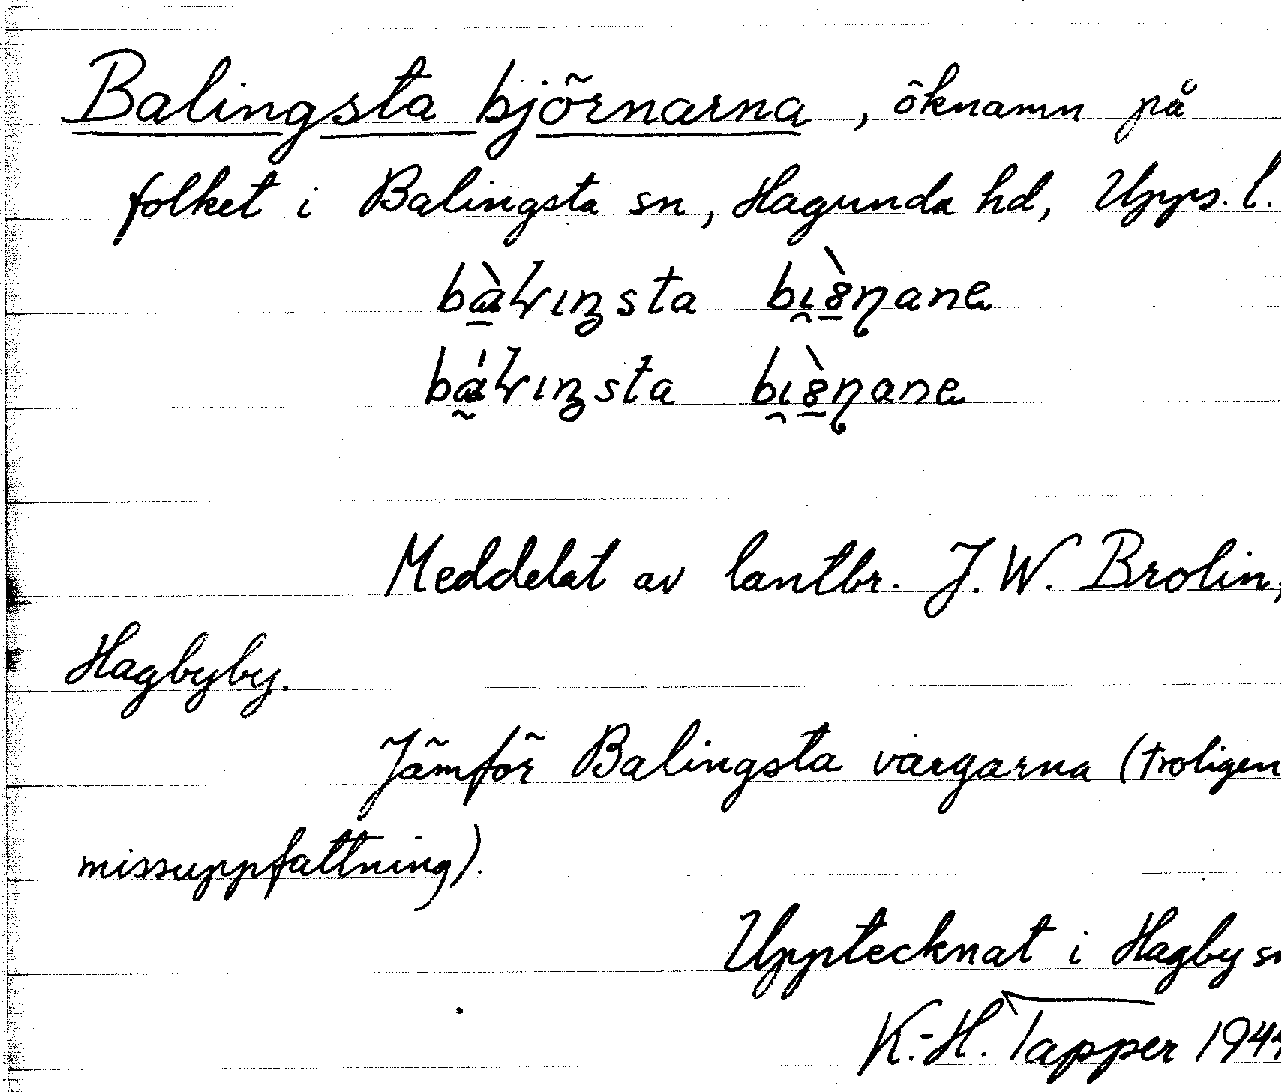 Balingsta björnarna, öknamn på
folket i Balingsta sn, Hagunda hd, Upps. l.
Meddelat av lantbr. J. W. Brolin,
Hagbyby.
Jämför Balingsta vargarna (troligen
missuppfattning).
Upptecknat i Hagby sn
K.-H. Tapper